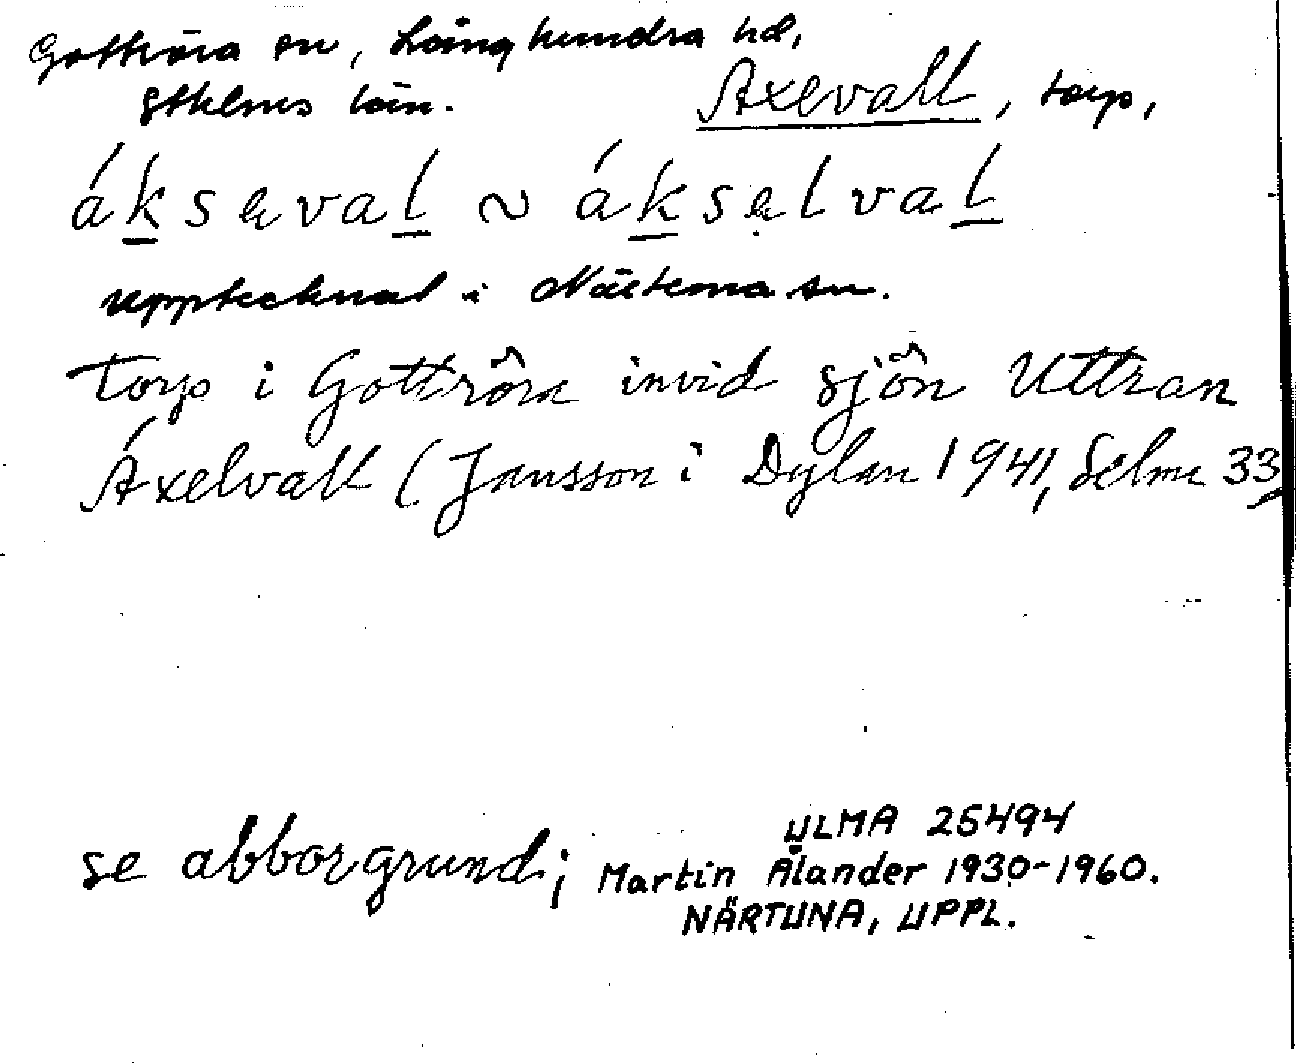 Gottröra sn, Långhundra hd,
Sthlms län.
Axevall, torp,
áksəval ~ áksəlval
upptecknad i Närtuna sn.
Torp i Gottröra invid sjön Uttran
Áxelvall (Jansson i Dylan 1941, Selma 33,
se abborgrund; ULMA 25494
Martin Ålander 1930-1960.
NÄRTUNA, UPPL.